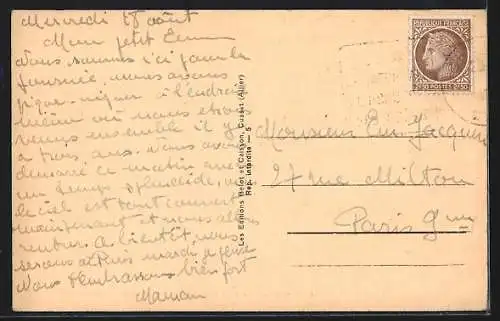 Mercredi 18 août
Mon petit
Nous sommes ici pour la
journée, nous avons
pique-niquer à l'endroit
même où nous étions
venus ensemble il y
a trois ans. Nous avons
démarré ce matin avec
un temps splendide,
le ciel est tout couvert
maintenant et nous allons
rentrer. A bientôt, nous
serons à Paris mardi, je pense
Nous t'embrassons bien fort
Maman
Les Editions Belot et Caisson, Cusset (Allier)
Rep. Interdite — 5
REPUBLIQUE FRANÇAISE
2F50 POSTES 2F50
Monsieur Em. Jacquin
27 rue Milton
Paris 9em